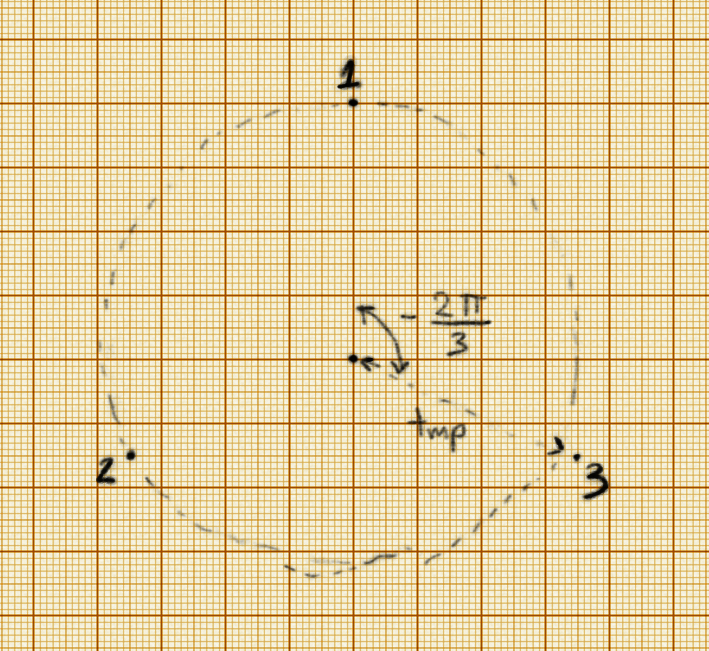 1
- 2π/3
tmp
2
3